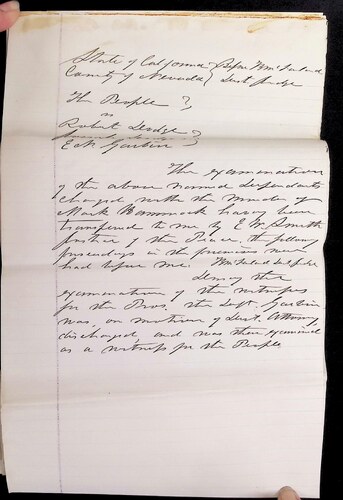 State of California } Before Wm
County of Nevada } Dist Judge
The People }
vs
Robert Dodge }
E.K. Garbin
The examination
of the above named defendants
charged with the Murder of
Mark Hammock having been
transferred to me by E W Smith
Justice of the Peace, the following
proceedings in the premises were
had before me. Wm Dist Judge
During the
examination of the witnesses
for the Pros. the Deft. Garbin
was, on motion of Dist. Attorney,
discharged and was then examined
as a witness for the People